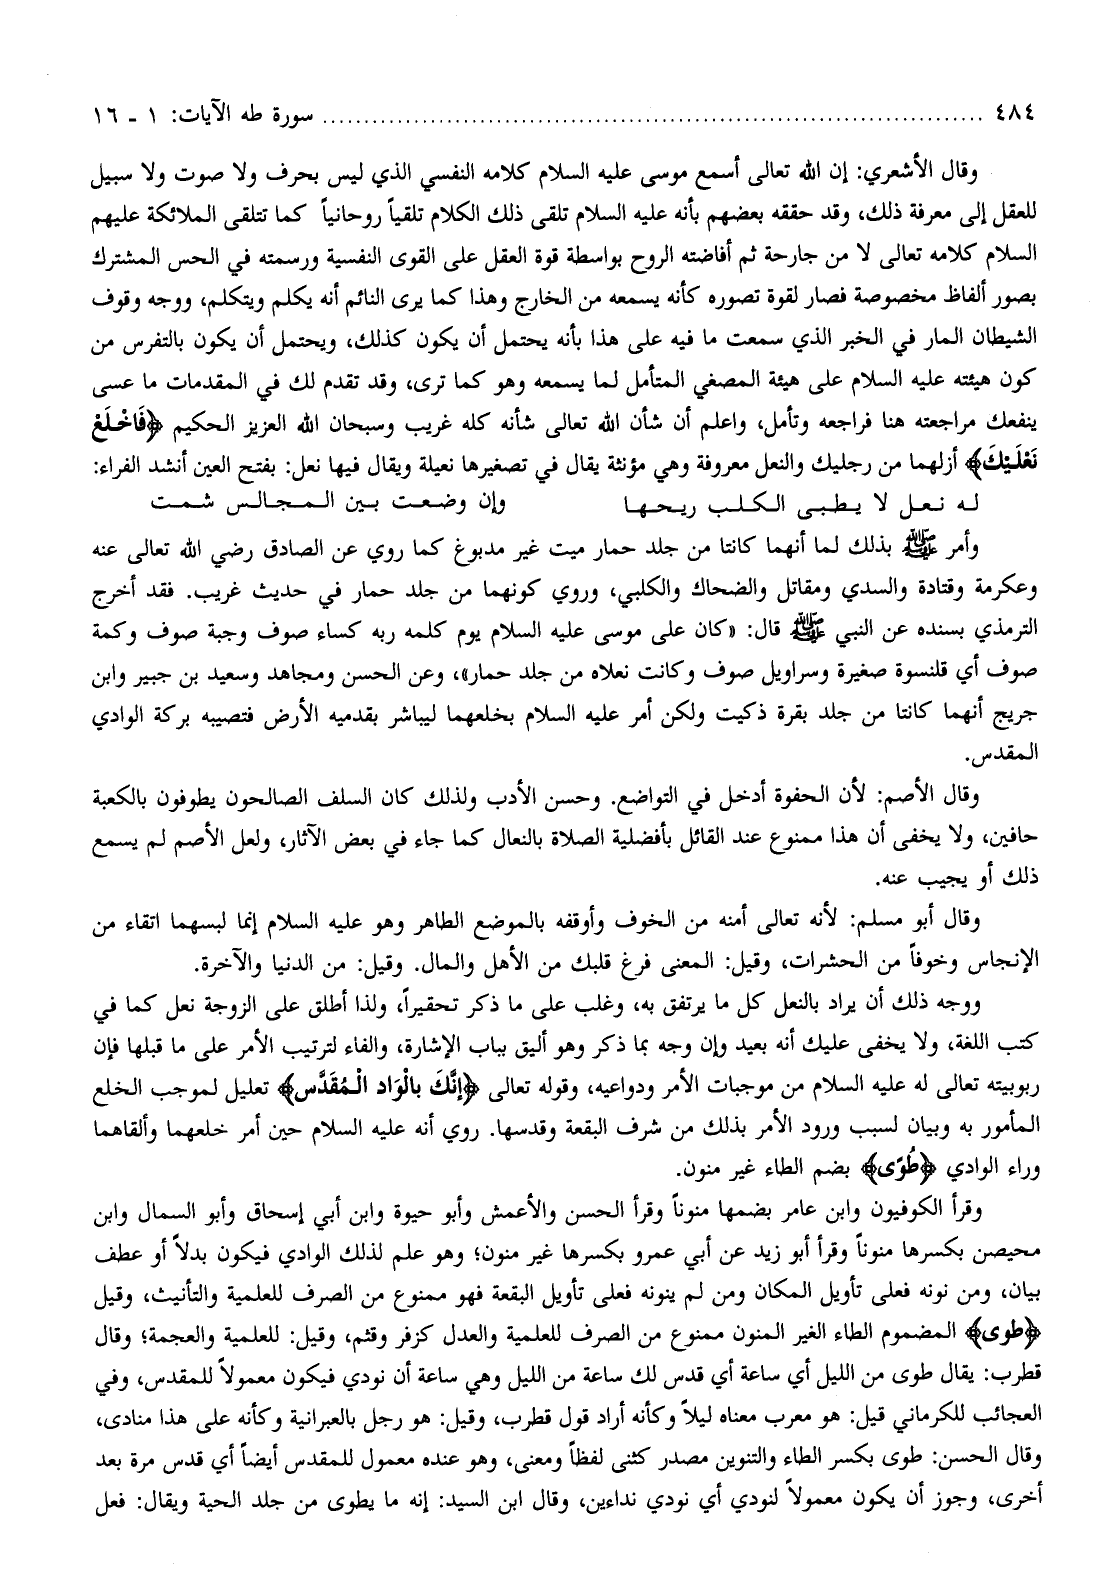 ٤٨٤ ........................ سورة طه الآيات: ١ ـ ١٦
وقال الأشعري: إن الله تعالى أسمع موسى عليه السلام كلامه النفسي الذي ليس بحرف ولا صوت ولا سبيل
للعقل إلى معرفة ذلك، وقد حققه بعضهم بأنه عليه السلام تلقى ذلك الكلام تلقياً روحانياً كما تتلقى الملائكة عليهم
السلام كلامه تعالى لا من جارحة ثم أفاضته الروح بواسطة قوة العقل على القوى النفسية ورسمته في الحس المشترك
بصور ألفاظ مخصوصة فصار لقوة تصوره كأنه يسمعه من الخارج وهذا كما يرى النائم أنه يكلم ويتكلم، ووجه وقوف
الشيطان المار في الخبر الذي سمعت ما فيه على هذا بأنه يحتمل أن يكون كذلك، ويحتمل أن يكون بالتفرس من
كون هيئته عليه السلام على هيئة المصغي المتأمل لما يسمعه وهو كما ترى، وقد تقدم لك في المقدمات ما عسى
ينفعك مراجعته هنا فراجعه وتأمل، واعلم أن شأن الله تعالى شأنه كله غريب وسبحان الله العزيز الحكيم ﴿فَاخْلَعْ
نَعْلَيْكَ﴾ أزلهما من رجليك والنعل معروفة وهي مؤنثة يقال في تصغيرها نعيلة ويقال فيها نعل: بفتح العين أنشد الفراء:
له نعل لا يطبى الكلب ريحها وإن وضعت بين المجالس شمت
وأمر ﷺ بذلك لما أنهما كانتا من جلد حمار ميت غير مدبوغ كما روي عن الصادق رضي الله تعالى عنه
وعكرمة وقتادة والسدي ومقاتل والضحاك والكلبي، وروي كونهما من جلد حمار في حديث غريب. فقد أخرج
الترمذي بسنده عن النبي ﷺ قال: «كان على موسى عليه السلام يوم كلمه ربه كساء صوف وجبة صوف وكمة
صوف أي قلنسوة صغيرة وسراويل صوف وكانت نعلاه من جلد حمار»، وعن الحسن ومجاهد وسعيد بن جبير وابن
جريج أنهما كانتا من جلد بقرة ذكيت ولكن أمر عليه السلام بخلعهما ليباشر بقدميه الأرض فتصيبه بركة الوادي
المقدس.
وقال الأصم: لأن الحفوة أدخل في التواضع. وحسن الأدب ولذلك كان السلف الصالحون يطوفون بالكعبة
حافين، ولا يخفى أن هذا ممنوع عند القائل بأفضلية الصلاة بالنعال كما جاء في بعض الآثار، ولعل الأصم لم يسمع
ذلك أو يجيب عنه.
وقال أبو مسلم: لأنه تعالى أمنه من الخوف وأوقفه بالموضع الطاهر وهو عليه السلام إنما لبسهما اتقاء من
الإنجاس وخوفاً من الحشرات، وقيل: المعنى فرغ قلبك من الأهل والمال. وقيل: من الدنيا والآخرة.
ووجه ذلك أن يراد بالنعل كل ما يرتفق به، وغلب على ما ذكر تحقيراً، ولذا أطلق على الزوجة نعل كما في
كتب اللغة، ولا يخفى عليك أنه بعيد وإن وجه بما ذكر وهو أليق بباب الإشارة، والفاء لترتيب الأمر على ما قبلها فإن
ربوبيته تعالى له عليه السلام من موجبات الأمر ودواعيه، وقوله تعالى ﴿إِنَّكَ بِالْوَاد الْمُقَدَّس﴾ تعليل لموجب الخلع
المأمور به وبيان لسبب ورود الأمر بذلك من شرف البقعة وقدسها. روي أنه عليه السلام حين أمر خلعهما وألقاهما
وراء الوادي ﴿طُوًى﴾ بضم الطاء غير منون.
وقرأ الكوفيون وابن عامر بضمها منوناً وقرأ الحسن والأعمش وأبو حيوة وابن أبي إسحاق وأبو السمال وابن
محيصن بكسرها منوناً وقرأ أبو زيد عن أبي عمرو بكسرها غير منون؛ وهو علم لذلك الوادي فيكون بدلاً أو عطف
بيان، ومن نونه فعلى تأويل المكان ومن لم ينونه فعلى تأويل البقعة فهو ممنوع من الصرف للعلمية والتأنيث، وقيل
﴿طوى﴾ المضموم الطاء الغير المنون ممنوع من الصرف للعلمية والعدل كزفر وقثم، وقيل: للعلمية والعجمة؛ وقال
قطرب: يقال طوى من الليل أي ساعة أي قدس لك ساعة من الليل وهي ساعة أن نودي فيكون معمولاً للمقدس، وفي
العجائب للكرماني قيل: هو معرب معناه ليلاً وكأنه أراد قول قطرب، وقيل: هو رجل بالعبرانية وكأنه على هذا منادى،
وقال الحسن: طوى بكسر الطاء والتنوين مصدر كثنى لفظاً ومعنى، وهو عنده معمول للمقدس أيضاً أي قدس مرة بعد
أخرى، وجوز أن يكون معمولاً لنودي أي نودي نداءين، وقال ابن السيد: إنه ما يطوى من جلد الحية ويقال: فعل